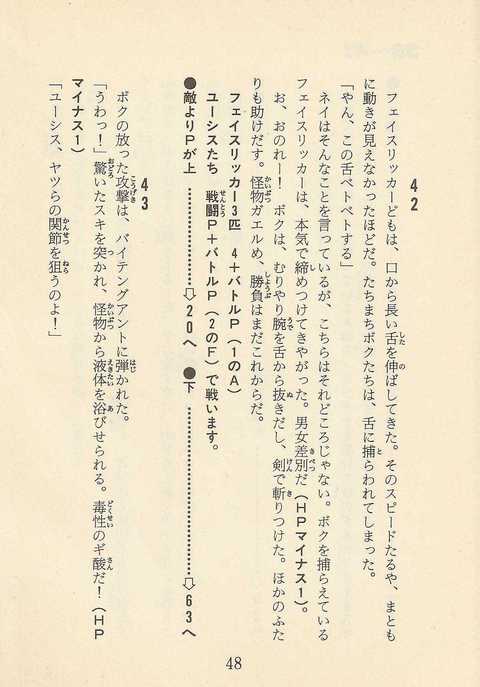 42
フェイスリッカーどもは、口から長い舌を伸ばしてきた。そのスピードたるや、まとも
に動きが見えなかったほどだ。たちまちボクたちは、舌に捕らわれてしまった。
「やん、この舌ベトベトする」
ネイはそんなことを言っているが、こちらはそれどころじゃない。ボクを捕らえている
フェイスリッカーは、本気で締めつけてきやがった。男女差別だ(HPマイナス1)。
お、おのれー! ボクは、むりやり腕を舌から抜きだし、剣で斬りつけた。ほかのふた
りも助けだす。怪物ガエルめ、勝負はまだこれからだ。
フェイスリッカー3匹 4+バトルP(1のA)
ユーシスたち 戦闘P+バトルP(2のF)で戦います。
●敵よりPが上…………⇨20へ ●下…………⇨63へ
43
ボクの放った攻撃は、バイティングアントに弾かれた。
「うわっ!」驚いたスキを突かれ、怪物から液体を浴びせられる。毒性のギ酸だ!(HP
マイナス1)
「ユーシス、ヤツらの関節を狙うのよ!」
48